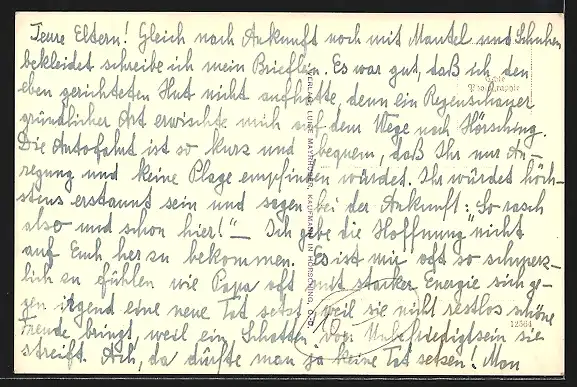 Teure Eltern! Gleich nach Ankunft noch mit Mantel und Schuhen
bekleidet schreibe ich mein Brieflein. Es war gut, daß ich den
eben gerichteten Hut nicht aufhatte, denn ein Regenschauer
gründlicher Art erwischte mich auf dem Wege nach Hörsching.
Die Autofahrt ist so kurz und bequem, daß Ihr nur An-
regung und keine Plage empfinden würdet. Ihr würdet höch-
stens erstaunt sein und sagen bei der Ankunft: "So rasch
also und schon hier!" – Ich gebe die Hoffnung nicht
auf Euch her zu bekommen. Es ist mir oft so schmerz-
lich zu fühlen wie Papa oft mit starker Energie sich ge-
gen irgend eine neue Tat setzt weil sie nicht restlos schöne
Freude bringt, weil ein Schatten von Unbefriedigtsein sie
streift. Ach, da dürfte man ja keine Tat setzen! Man
VERLAG LUISE MAYRHOFER, KAUFMANN IN HÖRSCHING, O.-Ö.
Echte
Photographie
12564